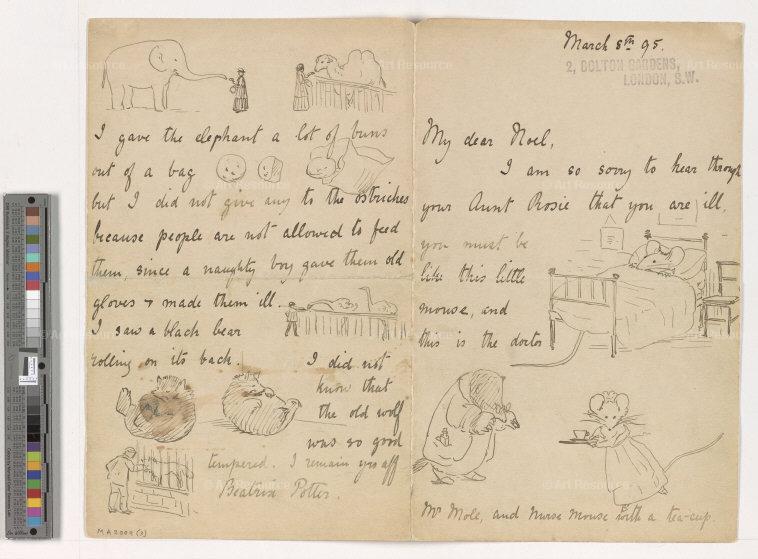 March 8th 95.
2, BOLTON GARDENS,
LONDON, S.W.
My dear Noel,
I am so sorry to hear through
your Aunt Rosie that you are ill,
you must be
like this little
mouse, and
this is the doctor
Mr Mole, and Nurse Mouse with a tea-cup.
I gave the elephant a lot of buns
out of a bag
but I did not give any to the ostriches
because people are not allowed to feed
them, since a naughty boy gave them old
gloves & made them ill.
I saw a black bear
rolling on its back.
I did not
know that
the old wolf
was so good
tempered. I remain yrs aff
Beatrix Potter.
MA 2009 (3)
Art Resource